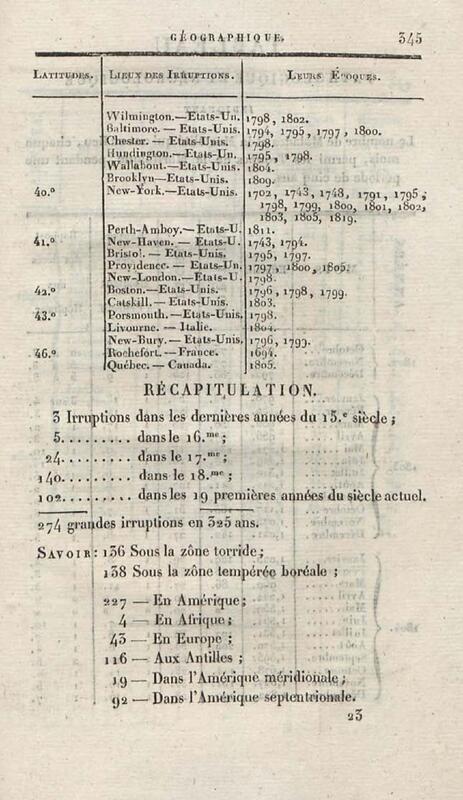 GÉOGRAPHIQUE. 345
LATITUDES. LIEUX DES IRRUPTIONS. LEURS ÉPOQUES.
Wilmington.—Etats-Un. 1798, 1802.
Baltimore. — Etats-Unis. 1794, 1795, 1797, 1800.
Chester. — Etats-Unis. 1798.
Hundington.—Etats-Un. 1795, 1798.
Wallabout. — Etats-Unis. 1804.
Brooklyn—Etats-Unis. 1809.
40.° New-York.—Etats-Unis. 1702, 1743, 1748, 1791, 1795;
1798, 1799, 1800, 1801, 1802,
1803, 1805, 1819.
Perth-Amboy.—Etats-U. 1811.
41.° New-Haven. — Etats-U. 1743, 1794.
Bristol. — Etats-Unis. 1795, 1797.
Providence. — Etats-Un. 1797, 1800, 1805.
New-London.—Etats-U. 1798.
42.° Boston.—Etats-Unis. 1796, 1798, 1799.
Catskill. — Etats-Unis. 1803.
43.° Porsmouth.—Etats-Unis. 1798.
Livourne. — Italie. 1804.
New-Bury.— Etats-Unis. 1796, 1799.
46.° Rochefort. — France. 1694.
Québec. — Canada. 1805.
RÉCAPITULATION.
3 Irruptions dans les dernières années du 15.e siècle;
5.......... dans le 16.me;
24.......... dans le 17.me;
140.......... dans le 18.me;
102.......... dans les 19 premières années du siècle actuel.
274 grandes irruptions en 325 ans.
SAVOIR: 136 Sous la zône torride;
138 Sous la zône tempérée boréale;
227 — En Amérique;
4 — En Afrique;
43 — En Europe;
116 — Aux Antilles;
19 — Dans l'Amérique méridionale;
92 — Dans l'Amérique septentrionale.
23